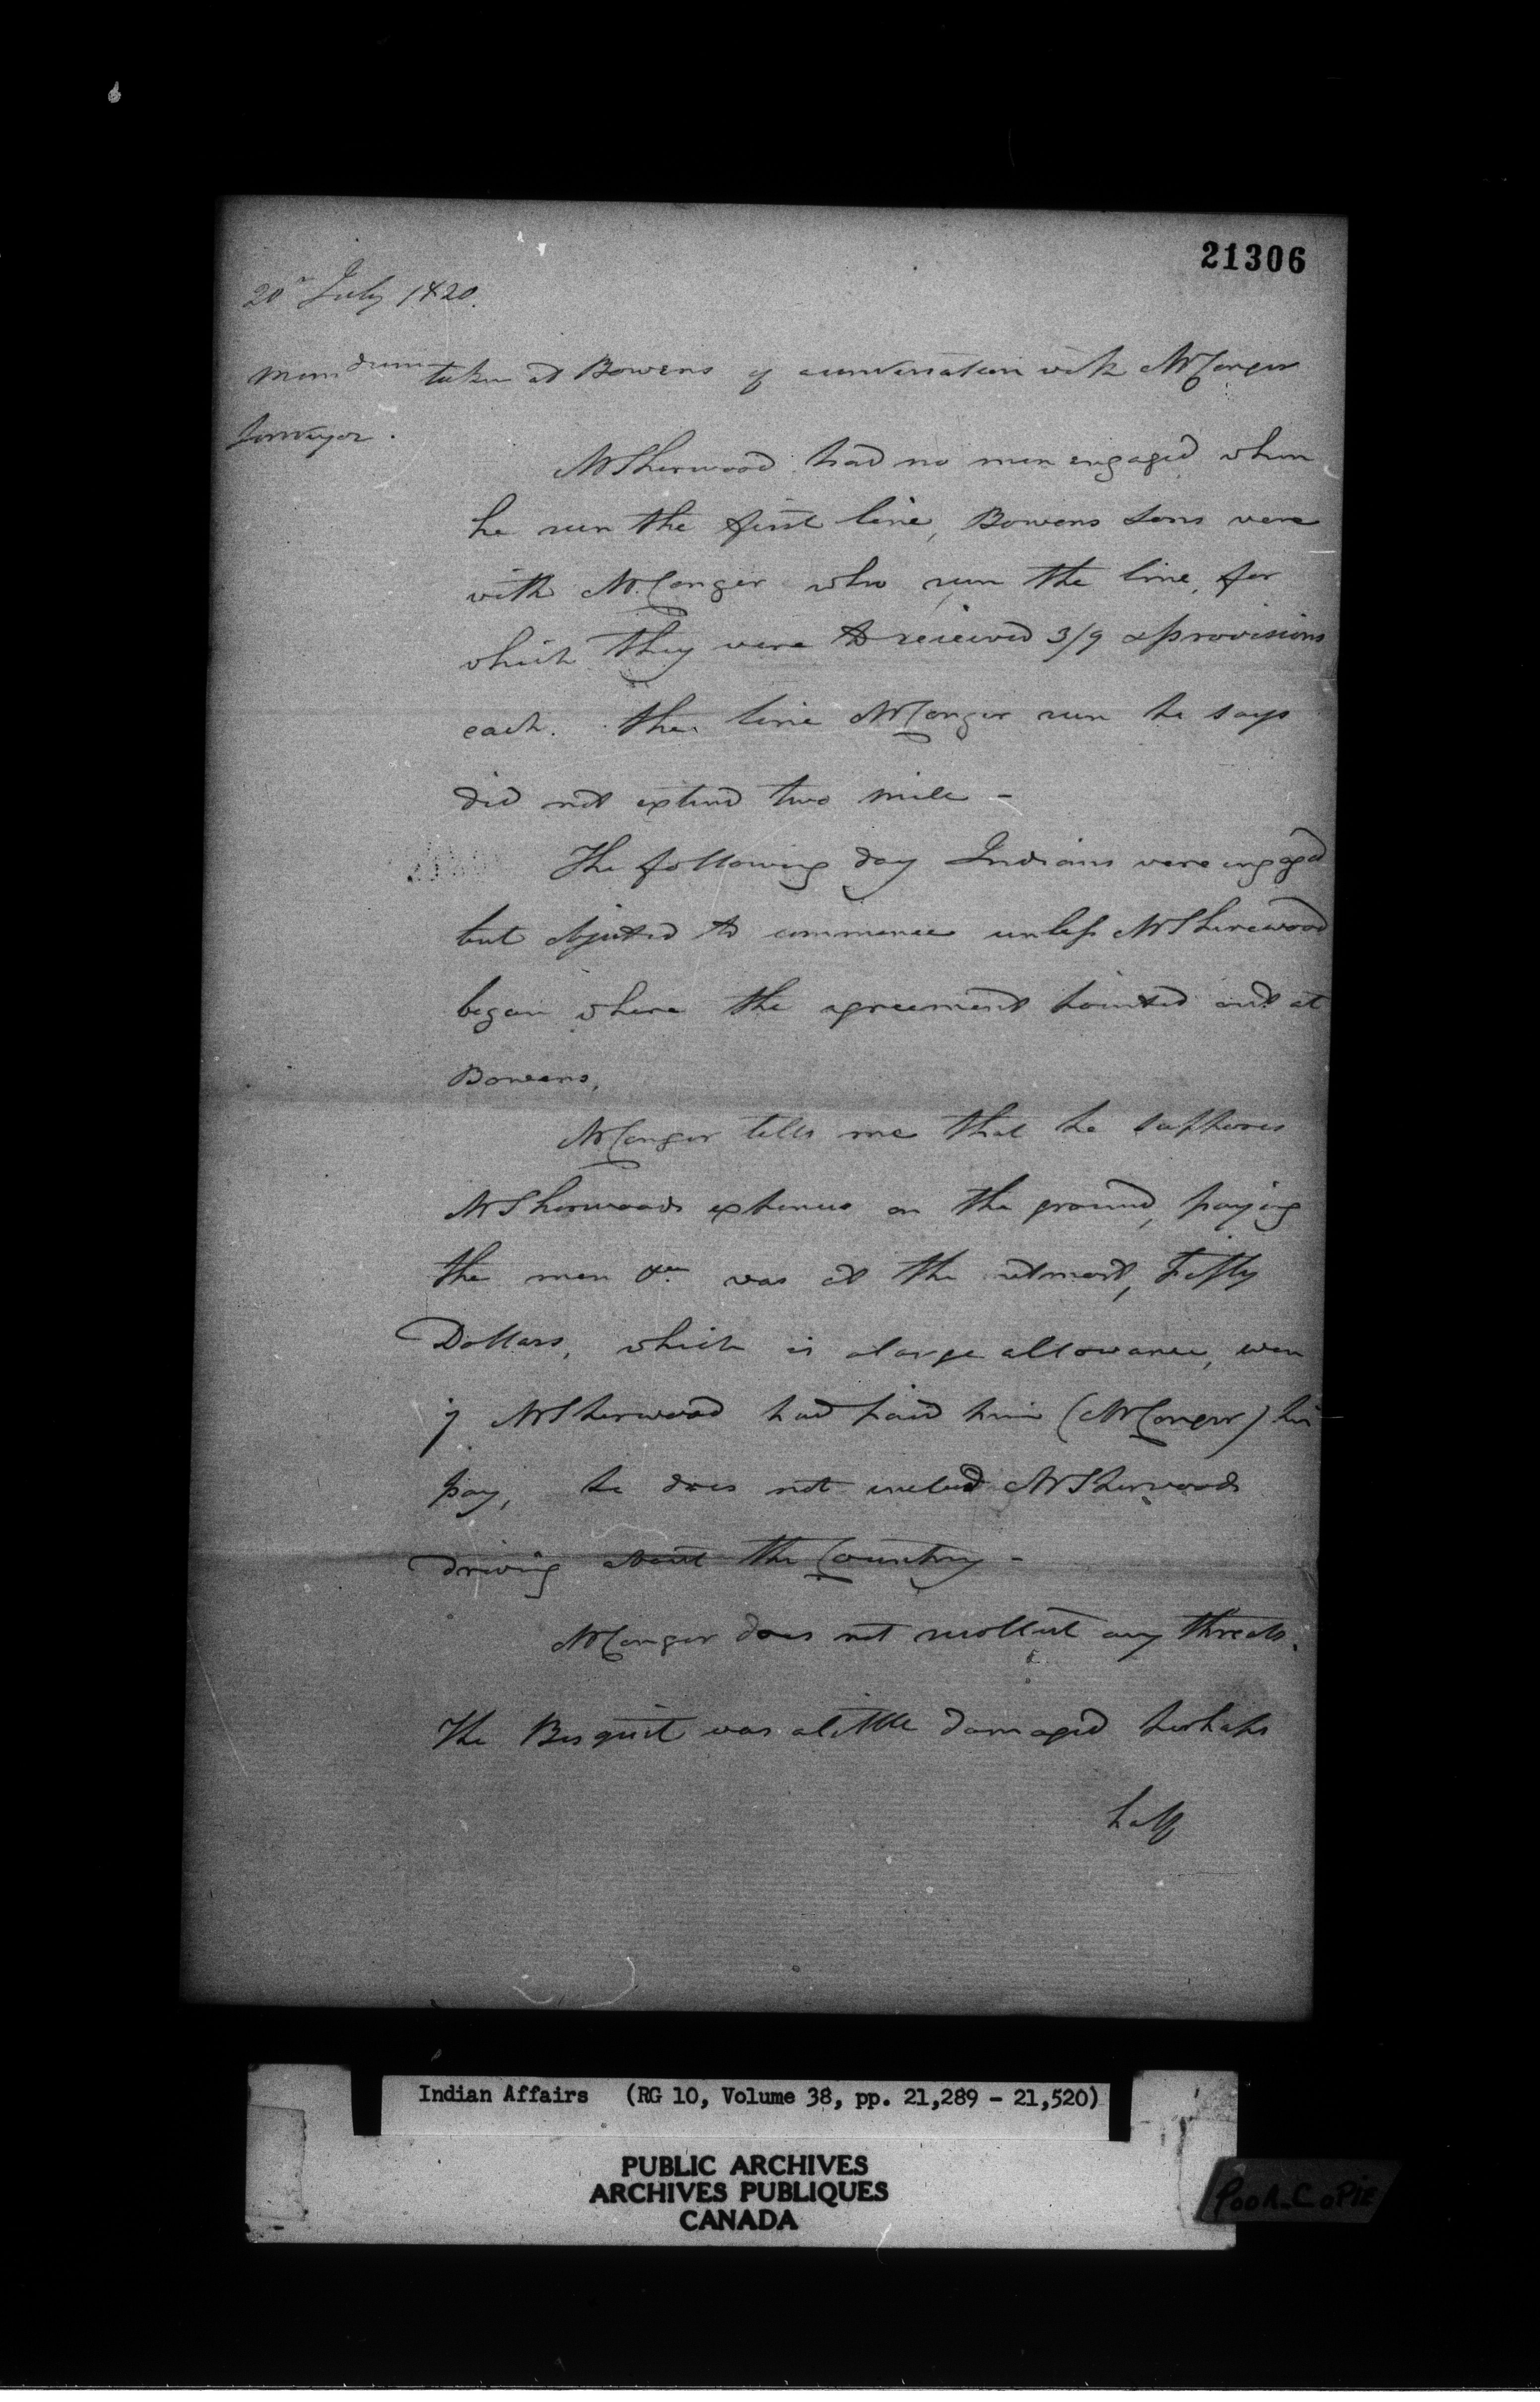 21306
20th July 1820.
Memdum taken at Bowens of a conversation with Mr Conger
Surveyor.
Mr Sherwood had no men engaged when
he run the first line, Bowens Sons were
with Mr. Conger who run the line, for
which they were to received 3/9 & provisions
each. The line Mr Conger run he says
did not extend two mile -
The following day Indians were engaged
but objected to commence unless Mr Sherewood
began where the agreement pointed out at
Bowens,
Mr Conger tells me that he supposes
Mr Sherwoods expences on the ground, paying
the men &c. was at the utmost, Fifty
Dollars, which is a large allowance, even
if Mr Sherwood had paid him (Mr Conger) his
pay, he does not includ Mr Sherwoods
driving about the Country -
Mr Conger does not recollect any threats.
The Bisquit was a little damaged perhaps
half
Indian Affairs (RG 10, Volume 38, pp. 21,289 - 21,520)
PUBLIC ARCHIVES
ARCHIVES PUBLIQUES
CANADA
Poor Copie